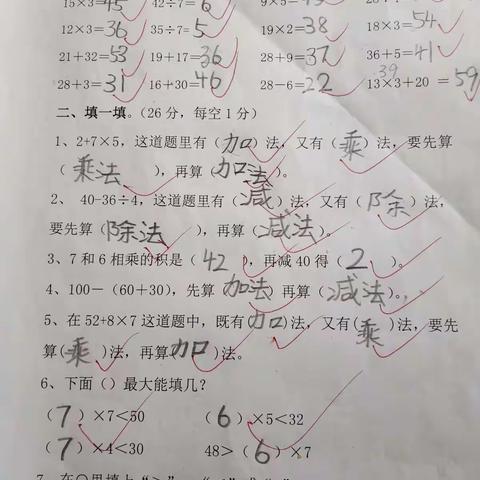 15×3=45 42÷7=6 9×5=
12×3=36 35÷7=5 19×2=38 18×3=54
21+32=53 19+17=36 28+9=37 36+5=41
28+3=31 16+30=46 28-6=22 13×3+20=59
39
二、填一填。(26分,每空1分)
1、2+7×5,这道题里有(加)法,又有(乘)法,要先算
(乘法),再算(加法)。
2、 40-36÷4,这道题里有(减)法,又有(除)法,
要先算(除法),再算(减法)。
3、7和6相乘的积是(42),再减40得(2)。
4、100-(60+30),先算(加法)再算(减法)。
5、在52+8×7这道题中,既有(加)法,又有(乘)法,要先
算(乘)法,再算(加)法。
6、下面()最大能填几?
(7)×7<50 (6)×5<32
(7)×4<30 48>(6)×7